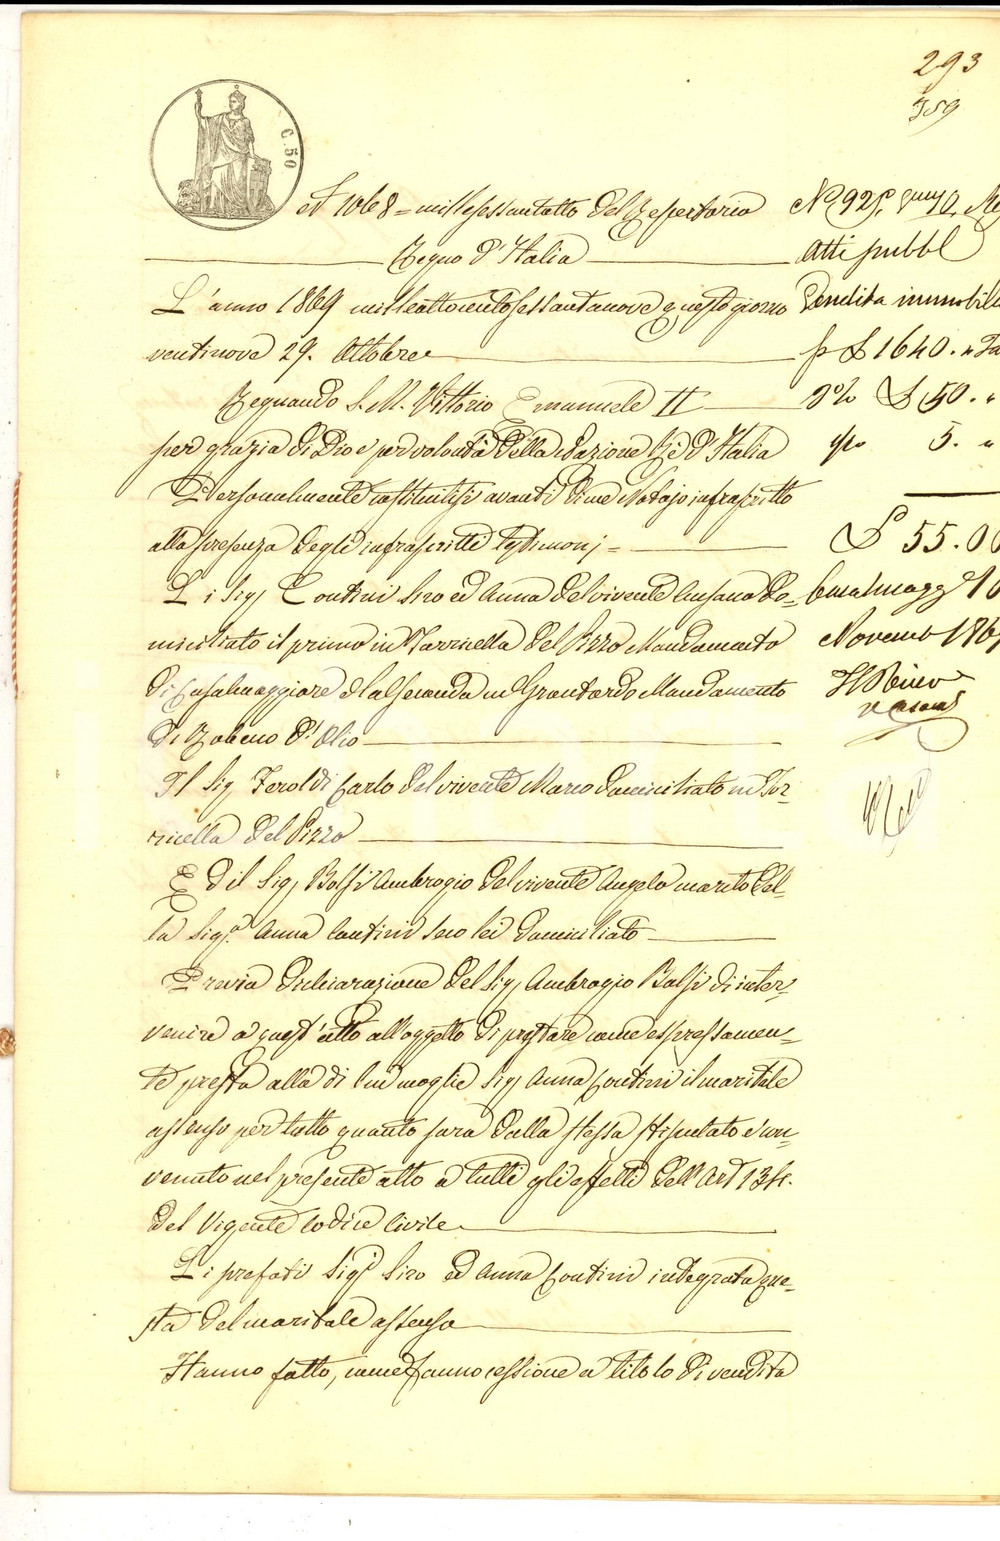 293
359
C. 50
N 1068 = millesessantotto del Repertorio
Regno d'Italia
L'anno 1869 milleottocentosessantanove questo giorno
ventinove 29. Ottobre
Regnando S. M. Vittorio Emanuele II
per grazia di Dio e per volontà della Nazione Re d'Italia
Personalmente costituitisi avanti di me Notajo infrascritto
alla presenza degli infrascritti testimonj =
Li Sig.i Contini Siro ed Anna del vivente do-
miciliato il primo in Torricella del Pizzo Mandamento
di Casalmaggiore e la seconda in Grontardo Mandamento
di Robecco d'Olio
Il Sig Feroldi Carlo del vivente Marco domiciliato in Tor-
ricella del Pizzo
Ed il Sig Bolsi Ambrogio del vivente Angelo marito del-
la Sig.a Anna Contini seco lei domiciliato
Previa dichiarazione del Sig Ambrogio Bolsi di inter-
venire a quest'atto all'oggetto di prestare come espressamen-
te presta alla di lui moglie Sig Anna Contini il maritale
assenso per tutto quanto sara dalla stessa stipulato e con-
venuto nel presente atto a tutti gli effetti dell'Art 134.
del Vigente Codice Civile
Li prefati Sig.i Siro ed Anna Contini integrata que-
sta del maritale assenso
Hanno fatto, come fanno cessione a titolo di vendita
N 925.
Atti pubbl
Vendita immobili
p £ 1640.
£ 50. "
5. "
£ 55.00
Casalmagg 10
Novemb 186
Il Ricev